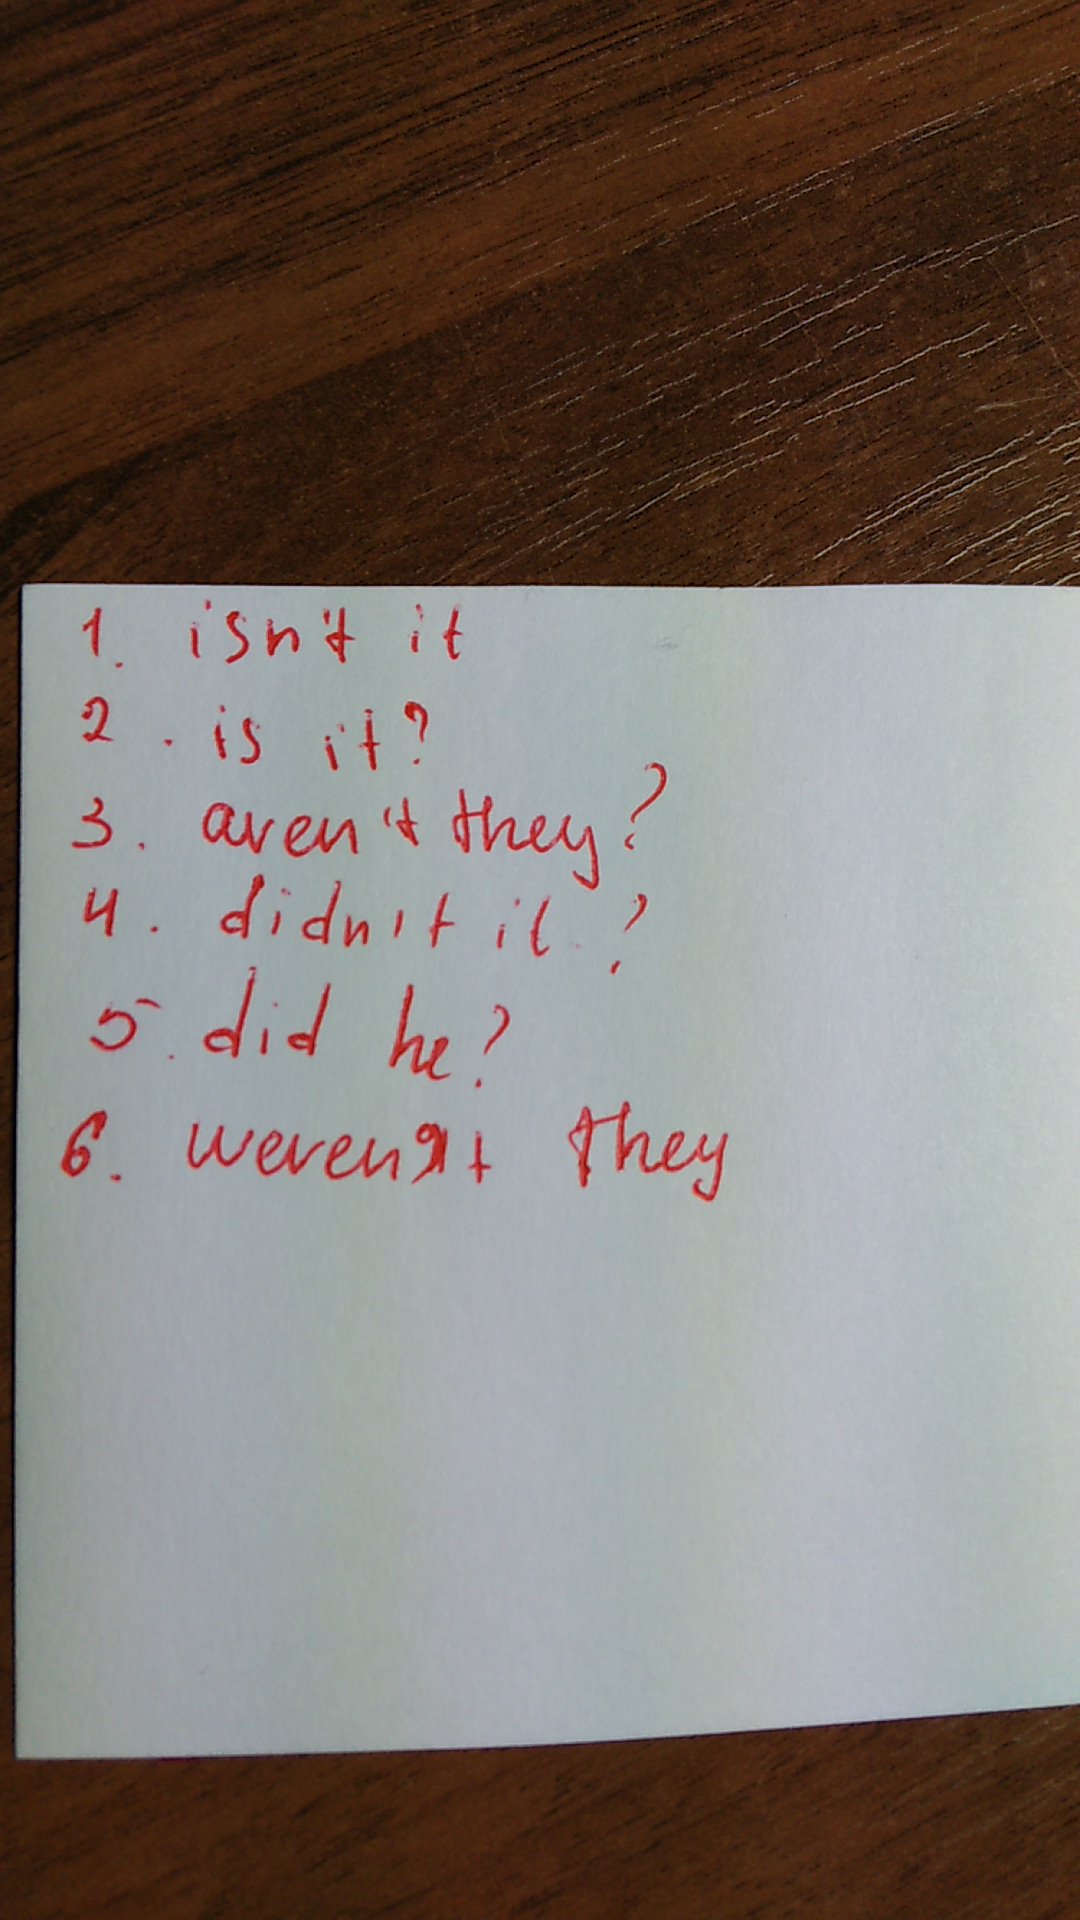 1. isn't it
2. is it?
3. aren't they?
4. didn't it?
5. did he?
6. weren't they